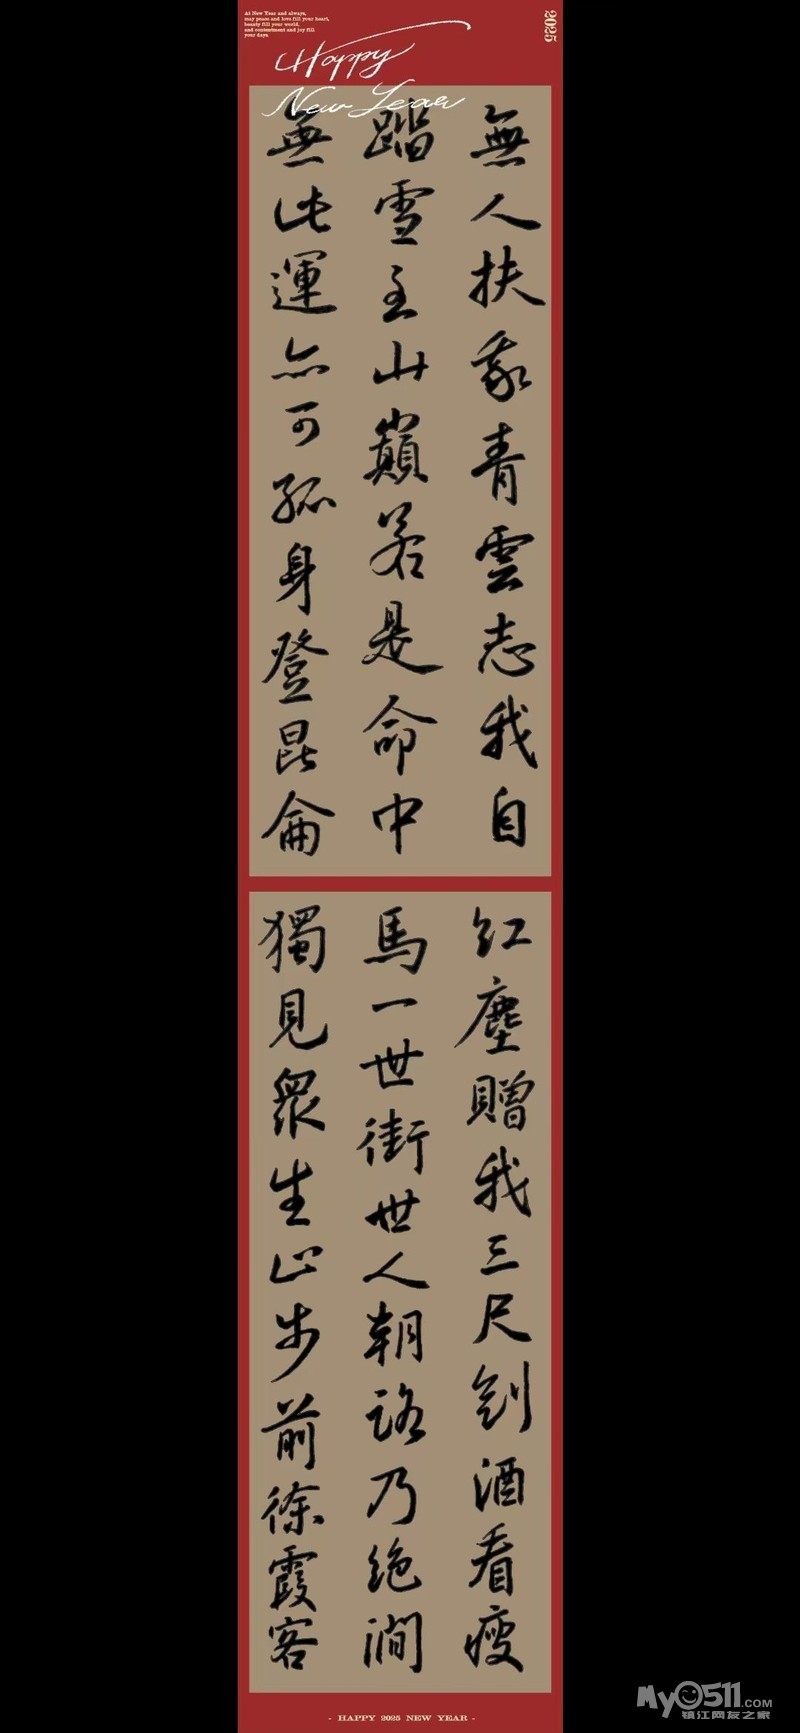 At New Year and always,
may peace and love fill your heart,
beauty fill your world,
and contentment and joy fill
your days.
2025
Happy
New Year
無人扶我青雲志我自
踏雪至山巔若是命中
無此運亦可孤身登昆侖
紅塵贈我三尺劍酒看瘦
馬一世街世人朝路乃絶澗
獨見衆生止步前徐霞客
- HAPPY 2025 NEW YEAR -
My0511.com
镇江网友之家